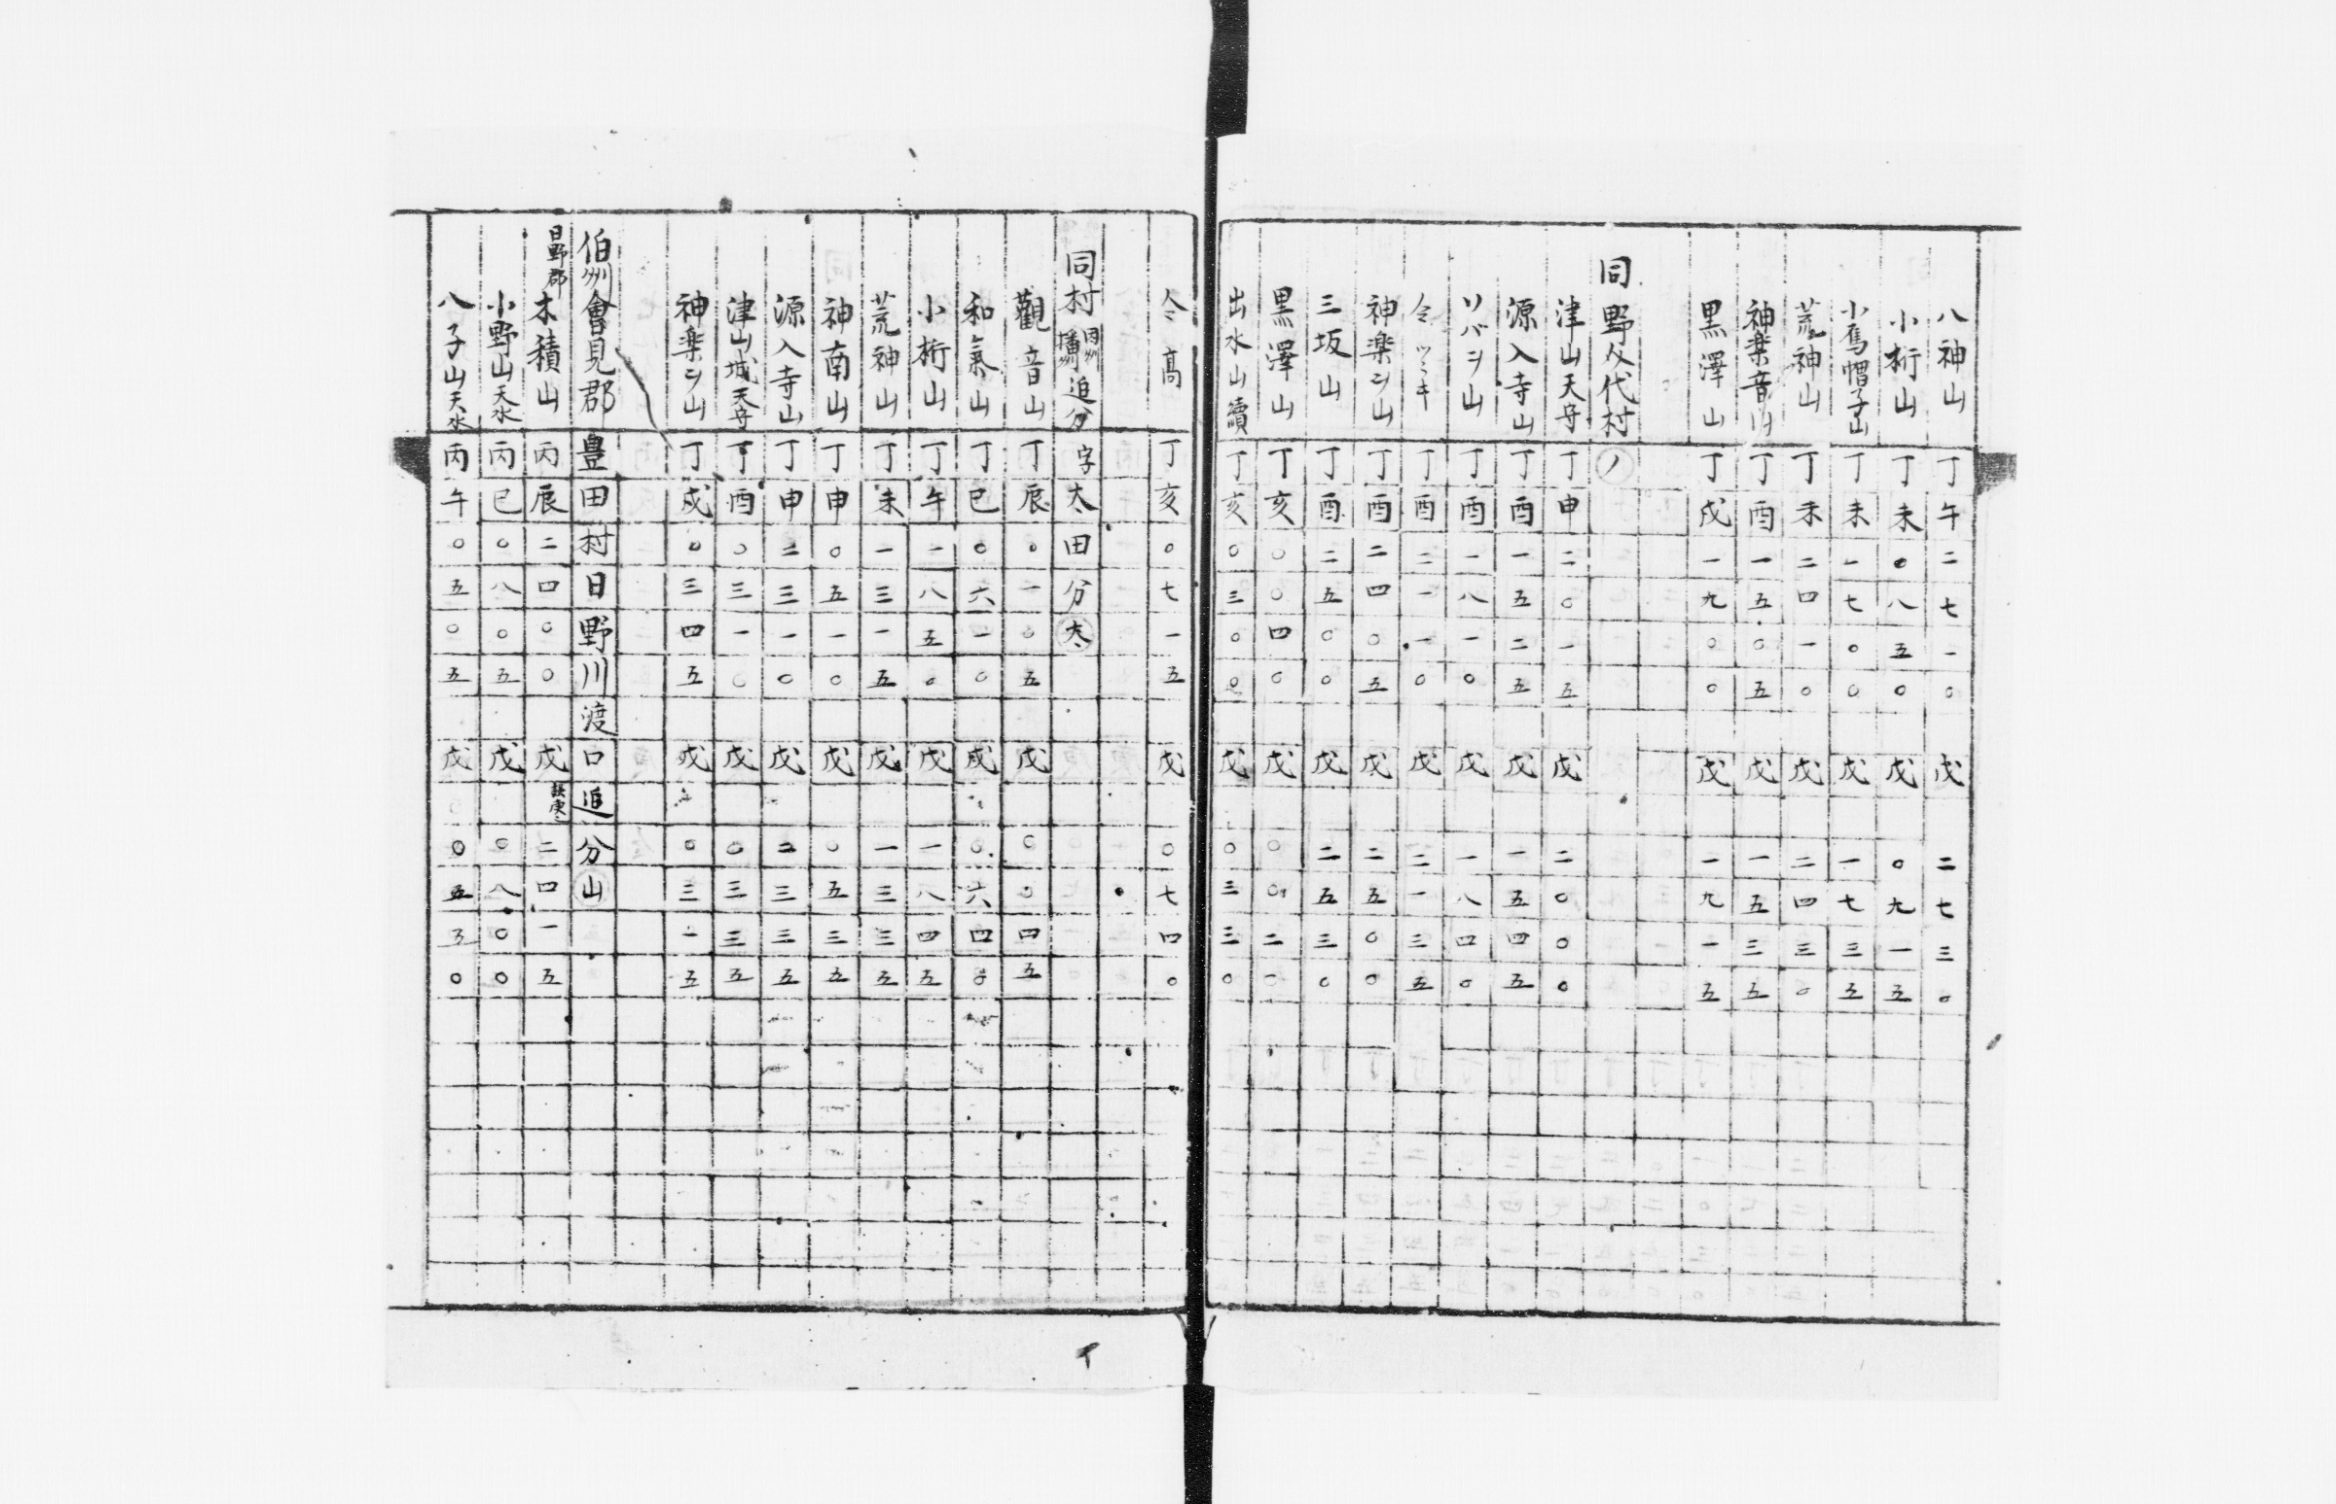 八神山 丁午二七一〇 戊二七三〇
小桁山 丁未〇八五〇 戊〇九一五
小寫帽子山 丁未一七〇〇 戊一七三五
荒神山 丁未二四一〇 戊二四三〇
神楽音山 丁酉一五〇五 戊一五三五
黒澤山 丁戌一九〇〇 戊一九一五
同野々代村 ノ
津山天守 丁申二〇一五 戊二〇〇〇
源入寺山 丁酉一五二五 戊一五四五
リバヲ山 丁酉一八一〇 戊一八四〇
仝ツヽキ 丁酉二一一〇 戊二一三五
神楽ヲ山 丁酉二四〇五 戊二五〇〇
三坂山 丁酉二五〇〇 戊二五三〇
黒澤山 丁亥〇〇四〇 戊〇〇二〇
出水山續 丁亥〇三〇〇 戊〇三三〇
仝高 丁亥〇七一五 戊〇七四〇
同村 因州播州 追分字太田分 大
觀音山 丁辰〇一〇五 戊〇〇四五
和氣山 丁巳〇六一〇 戊〇六四〇
小桁山 丁午一八五〇 戊一八四五
荒神山 丁未一三一五 戊一三三五
神南山 丁申〇五一〇 戊〇五三五
源入寺山 丁申二三一〇 戊二三三五
津山城天守 丁酉〇三一〇 戊〇三三五
神楽ヲ山 丁戌〇三四五 戊〇三一五
伯州會見郡豊田村日野川渡口追分山
日野郡 木積山 丙辰二四〇〇 戊二四一五
小野山天水 丙巳〇八〇五 戊〇八〇〇
八子山天水 丙午〇五〇五 戊〇五五〇